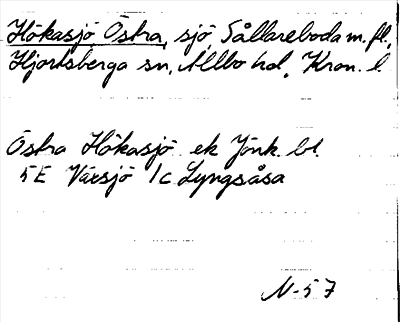 Hökasjö Östra, sjö Sållareboda m. fl.,
Hjortsberga sn, Allbo hd, Kron. l.
Östra Hökasjö ek Jönk. bl.
5E Växsjö 1c Lyngsåsa
N-57